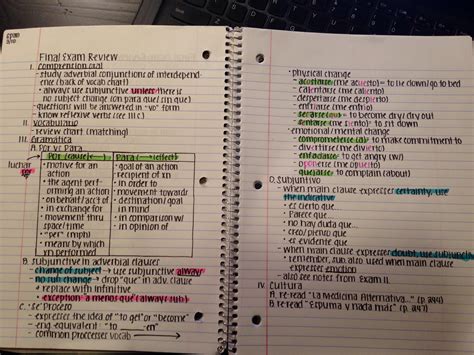 Final Exam Review
I. Comprensión oral
- study adverbial conjunctions of interdependence (back of vocab chart)
- always use subjunctive unless there is
no subject change (on para que/sin que)
- questions will be answered in "yo" form
- know reflexive verbs (see III C)
II. Vocabulario
- review chart (matching)
III. Gramática
A. Por vs. Para
Por (cause) Para (effect)
luchar por
• motive for an action
• the agent performing an action
• on behalf/acct of
• in exchange for
• movement thru space/time
• "per" (mph)
• means by which xn performed
• goal for an action
• recipient of xn
• in order to
• movement towards
• destination/goal
• in mind
• in comparison w/
• in opinion of
B. Subjuntive in adverbial clauses
- change of subject → use subjunctive always
- no subj change → drop "que" in adv. clause
a replace with infinitive
• exception: a menos que (always sub)
C. "Se" Proceso
- expresses the idea of "to get" or "become"
- eng. equivalent: "to ____en"
- common processes vocab
• physical change
- acostarse (me acuesto) = to lie down/go to bed
- calentarse (me caliento)
- despertarse (me despierto)
- enfriarse (me enfrío)
- secarse (ou) = to become dry/dry out
- sentarse (me siento) = to sit down
• emotional/mental change
- comprometerse (a) = to make commitment to
- divertirse (me divierto)
- enfadarse = to get angry (w/)
- oponerse (me opongo)
- quejarse = to complain (about)
D. Subjuntivo
- when main clause expresses certainty, use
the indicative
• es cierto que...
• Parece que...
• no hay duda que...
• creo/pienso que...
• es evidente que...
- when main clause expresses doubt, use subjunctive
- remember, sub also used when main clause
expresses emotion
- also see notes from Exam II
IV. Cultura
A. re-read "La Medicina Alternativa..."
B. re-read "Espuma y nada más"